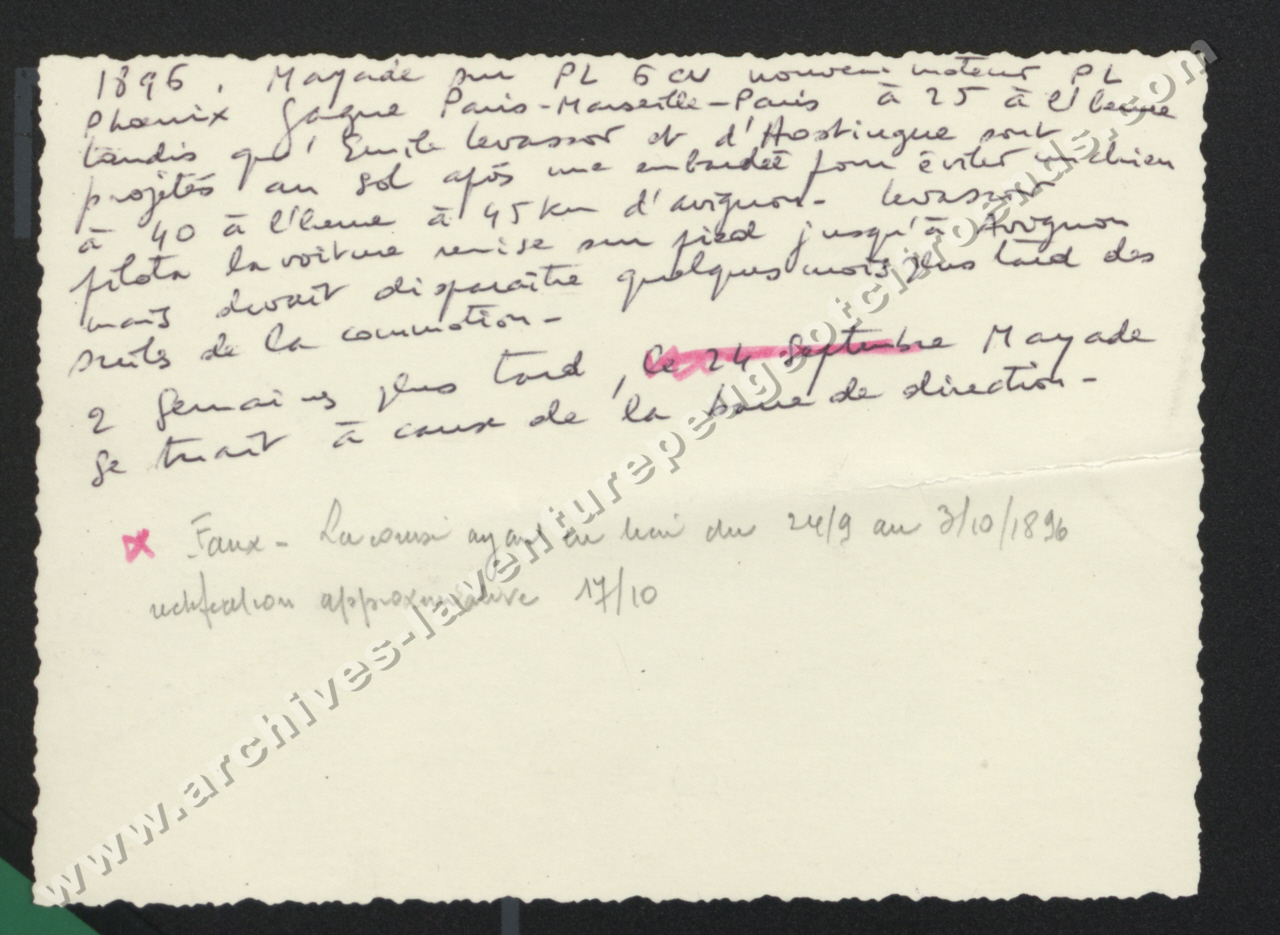 1896. Mayade sur PL 6 CV nouveau moteur PL
Phoenix gagne Paris-Marseille-Paris à 25 à l'heure
tandis qu'Emile Levassor et d'Hostingue sont
projetés au sol après une embardée pour éviter un chien
à 40 à l'heure à 45 km d'avignon - Levassor
pilota la voiture remise sur pied jusqu'à Avignon
mais devait disparaître quelques mois plus tard des
suites de la commotion -
2 semaines plus tard, le 24 septembre Mayade
se tuait à cause de la barre de direction -
x Faux - La course ayant eu lieu du 24/9 au 3/10/1896
rectification approximative 17/10
www.archives-laventurepeugeotcitroends.com